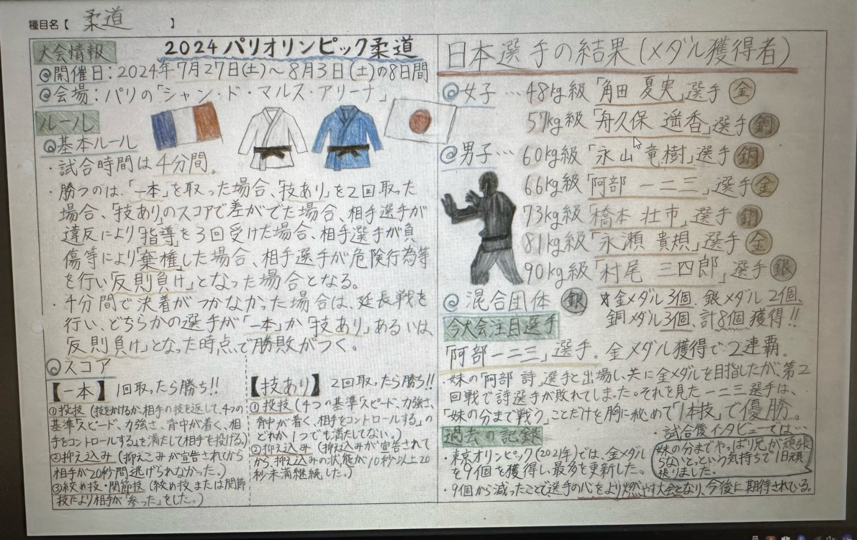 種目名【 柔道 】
2024パリオリンピック柔道
大会情報
◎開催日:2024年7月27日(土)〜8月3日(土)の8日間
◎会場:パリの「シャン・ド・マルス・アリーナ」
ルール
◎基本ルール
・試合時間は4分間。
・勝つのは、「一本」を取った場合、「技あり」を2回取った
場合、「技あり」のスコアで差がでた場合、相手選手が
違反により「指導」を3回受けた場合、相手選手が負
傷等により棄権した場合、相手選手が危険行為等
を行い「反則負け」となった場合となる。
・4分間で決着がつかなかった場合は、延長戦を
行い、どちらかの選手が「一本」か「技あり」、あるいは、
「反則負け」となった時点で勝敗がつく。
◎スコア
【一本】1回取ったら勝ち!!
①投技(技をかけるか相手の技を返して、4つの
基準スピード、力強さ、背中が着く、相
手をコントロールする」を満たして相手を投げる)
②抑え込み(抑えこみが宣告されてから
相手が20秒間逃げられなかった。)
③絞め技・関節技(絞め技または関節
技により相手が「参った」をした。)
【技あり】2回取ったら勝ち!!
①投技(4つの基準スピード、力強さ、
背中が着く、相手をコントロールする」の
どれか1つでも満たしてない。)
②抑え込み(抑え込みが宣告されて
から、抑え込みの状態が10秒以上20
秒未満継続した。)
日本選手の結果(メダル獲得者)
◎女子…48kg級「角田 夏実」選手 金
57kg級「舟久保 遥香」選手 銅
◎男子…60kg級「永山 竜樹」選手 銅
66kg級「阿部 一二三」選手 金
73kg級「橋本 壮市」選手 銅
81kg級「永瀬 貴規」選手 金
90kg級「村尾 三四郎」選手 銀
◎混合団体 銀 ☆金メダル3個、銀メダル2個、
銅メダル3個、計8個獲得!!
今大会注目選手
「阿部一二三」選手。金メダル獲得で2連覇。
・妹の「阿部 詩」選手と出場し、共に金メダルを目指したが、第2
回戦で詩選手が敗れてしまった。それを見た一二三選手は、
「妹の分まで戦う」ことだけを胸に秘めて「1本技」で優勝。
試合後インタビューでは…
妹の分までやっぱり兄が頑張
らないとっていう気持ちで1日頑
張りました。
過去の記録
・東京オリンピック(2021年)では、金メダル
を9個を獲得し、最多を更新した。
・9個から減ったことで選手の心をより燃やす大会となり、今後に期待されている。